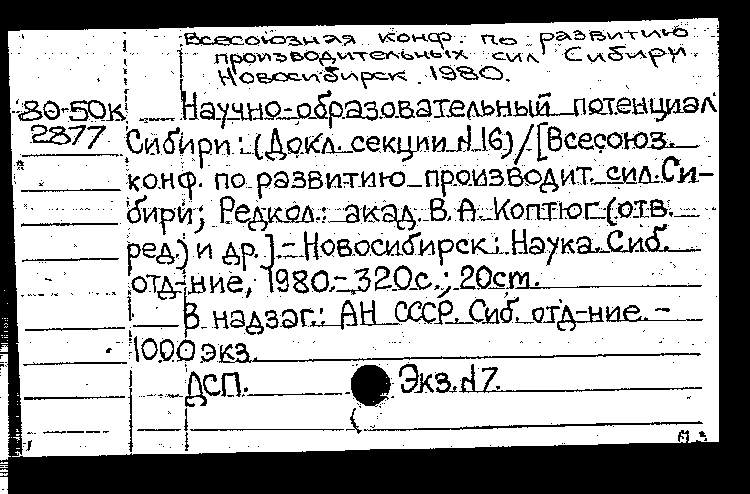 Всесоюзная конф. по развитию
производительных сил Сибири.
Новосибирск. 1980.
80-50к Научно-образовательный потенциал
2877 Сибири: (Докл. секции №16) / [Всесоюз.
конф. по развитию производит. сил Си-
бири; Редкол.: акад. В.А. Коптюг (отв.
ред.) и др.]. - Новосибирск: Наука. Сиб.
отд-ние, 1980. - 320с.; 20см.
В надзаг.: АН СССР. Сиб. отд-ние. -
1000 экз.
ДСП. Экз. №7.